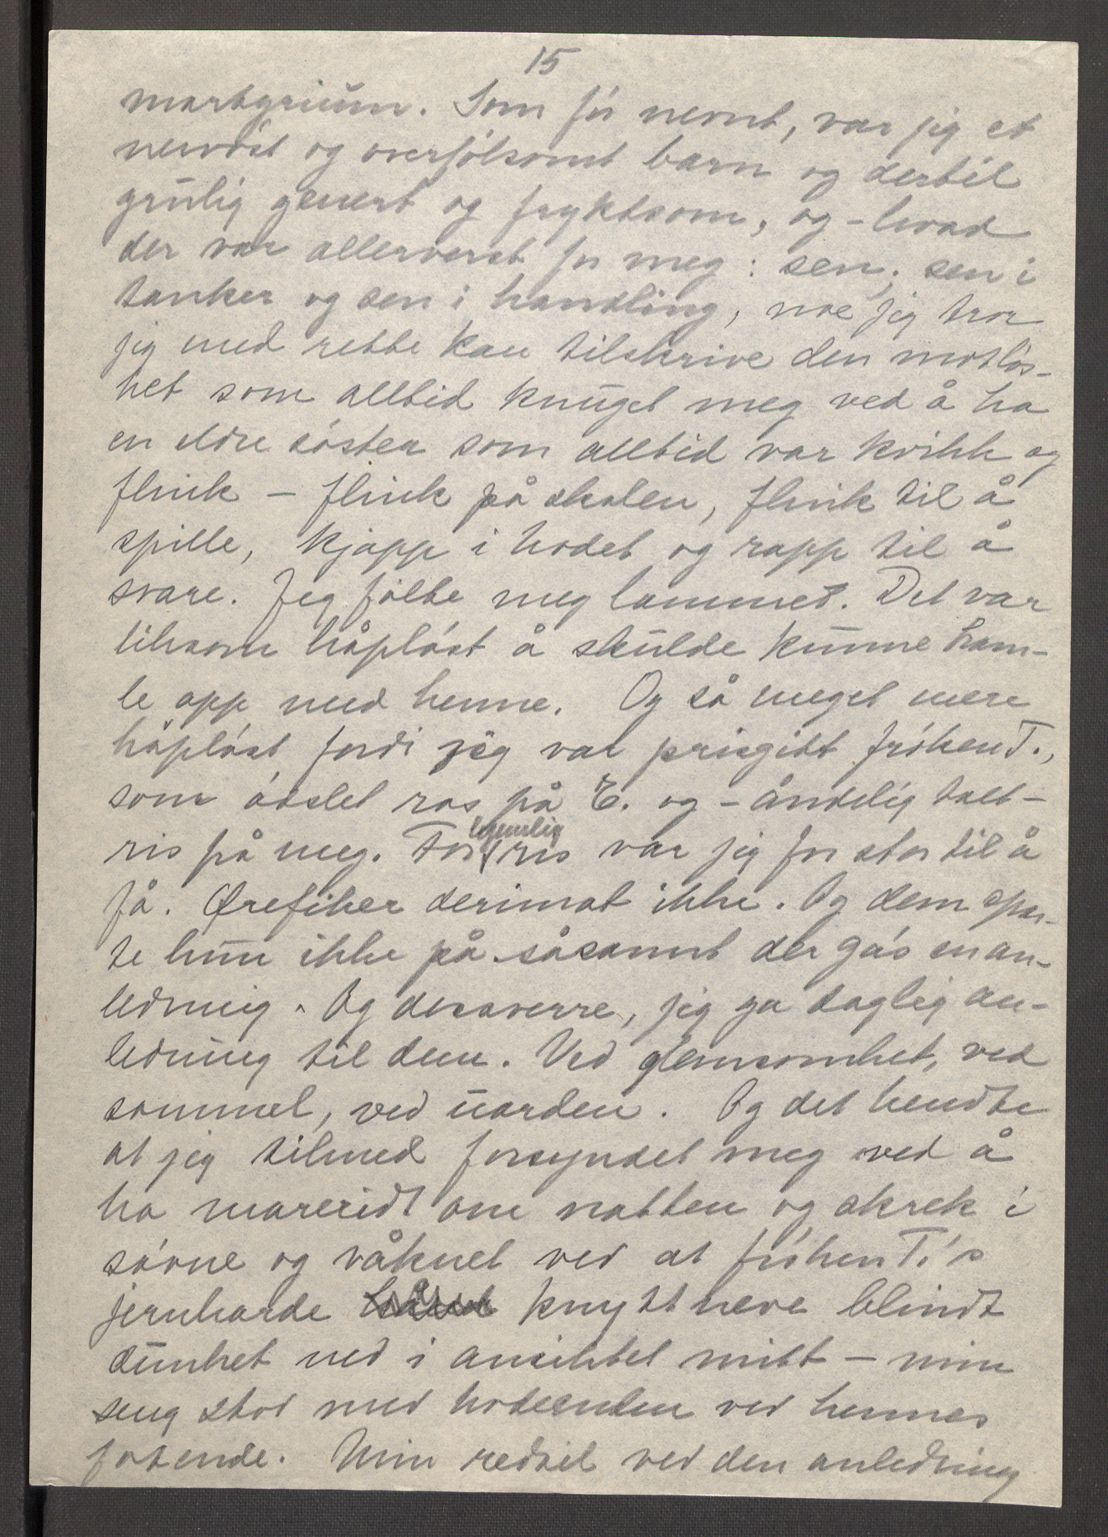 15
martyrium. Som før nevnt, var jeg et
nervøst og overfølsomt barn og dertil
grulig genert og fryktsom, og – hvad
der var allerverst for meg: sen; sen i
tanker og sen i handling, noe jeg tror
jeg med rette kan tilskrive den motløs-
het som alltid knuget meg ved å ha
en eldre søster som alltid var kvikk og
flink – flink på skolen, flink til å
spille, kjapp i hodet og rapp til å
svare. Jeg følte meg lammet. Det var
liksom håpløst å skulde kunne ham-
le opp med henne. Og så meget mere
håpløst fordi jeg var prisgitt frøken T.,
som ødslet ros på E. og – åndelig talt –
ris på meg. For legemlig ris var jeg for stor til å
få. Ørefiker derimot ikke. Og dem spar-
te hun ikke på såsannt der gås en an-
ledning. Og dessverre, jeg ga daglig an-
ledning til dem. Ved glemsomhet, ved
sommel, ved uorden. Og det hendte
at jeg tilmed forsyndet meg ved å
ha mareridt om natten og skrek i
søvne og våknet ved at frøken T.'s
jernharde knyttneve blindt
dunket ned i ansiktet mitt – min
seng stod med hodeenden ved hennes
fotende. Min redsel ved den anledning